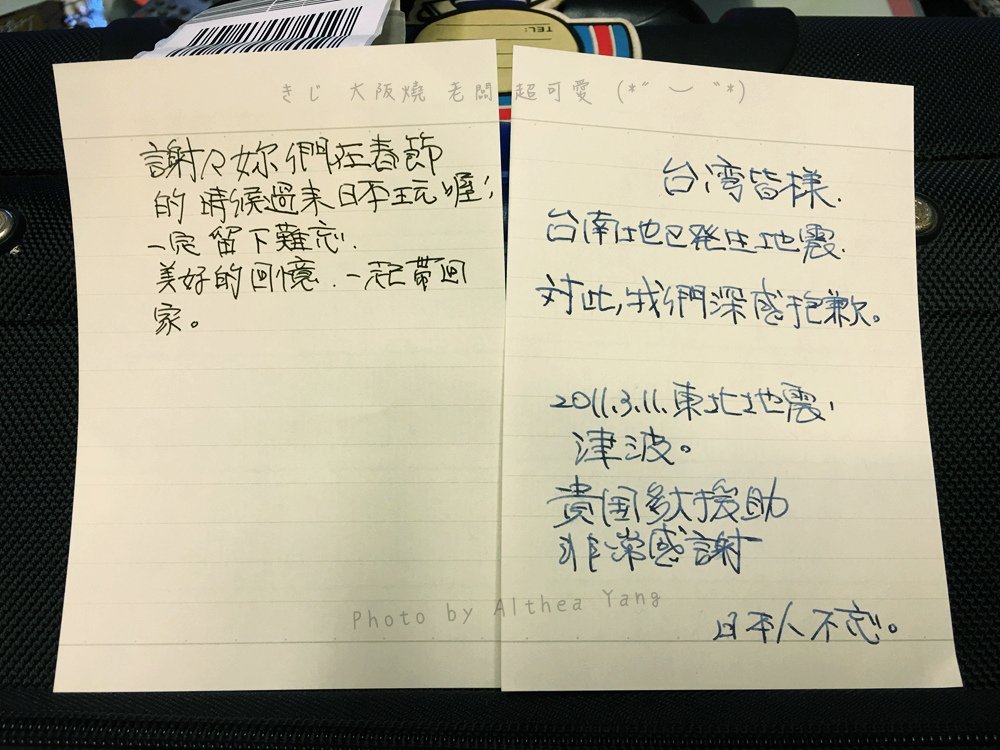 TEL:
きじ 大阪燒 老闆 超可愛 (*˘ ︶ ˘*)
謝々妳們在春節
的時候過来日本玩喔!
一定留下難忘.
美好的回憶.一起帶回
家。
台湾皆様.
台南地已発生地震.
対此,我們深感抱歉。
2011.3.11.東北地震,
津波。
貴国多大援助
非常感謝
日本人不忘。
Photo by Althea Yang